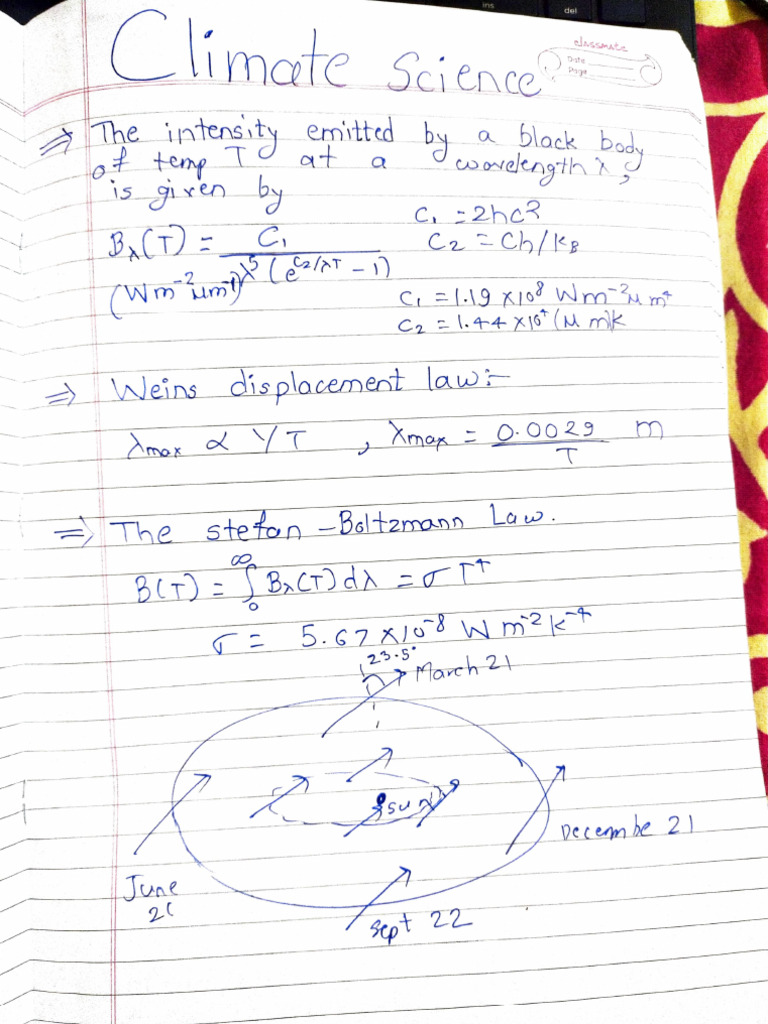 ins
del
classmate
Date
Page
Climate Science
⇒ The intensity emitted by a black body
of temp T at a wavelength λ,
is given by
C₁ = 2hc²
Bλ(T) = C₁ / λ⁵(e^(C₂/λT) − 1)
C₂ = Ch/kB
(Wm⁻² μm⁻¹)
C₁ = 1.19 × 10⁸ Wm⁻² μm⁴
C₂ = 1.44 × 10⁴ (μ m)k
⇒ Weins displacement law:-
λmax ∝ 1/T , λmax = 0.0029 / T m
⇒ The stefan - Boltzmann Law.
B(T) = ∫₀^∞ Bλ(T) dλ = σ T⁴
σ = 5.67 × 10⁻⁸ W m⁻² k⁻⁴
23.5°
March 21
sun
Decembe 21
June
21
Sept 22